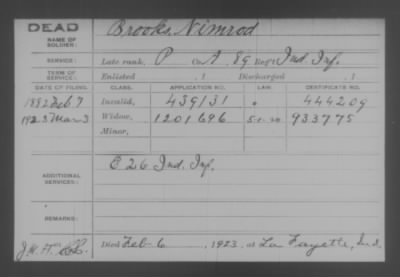 DEAD
Brooks, Nimrod
NAME OF SOLDIER:
SERVICE: Late rank, P Co. A, 89 Reg't Ind. Inf.
TERM OF SERVICE: Enlisted , 1 Discharged , 1
DATE OF FILING. CLASS. APPLICATION NO. LAW. CERTIFICATE NO.
1892 Feb. 7 Invalid, 439131 444209
1923 Mar 3 Widow, 1201696 5-1-20 933775
Minor,
ADDITIONAL SERVICES: C 26 Ind. Inf.
REMARKS:
J.W.H. Died Feb. 6, 1923, at La Fayette, Ind.